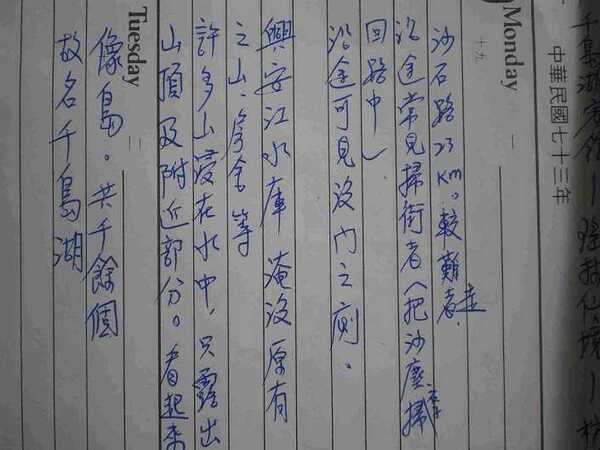 千島湖賓館—瑤琳仙境—杭
中華民國七十三年
Monday
十九
一
沙石路23KM。較難走
沿途常見掃街者(把沙塵掃
回路中)
沿途可見沒門之廁。
興安江水庫 淹沒原有
之山、房舍等
許多山浸在水中,只露出
山頂及附近部分。看起來
Tuesday
二
像島。共千餘個
故名千島湖